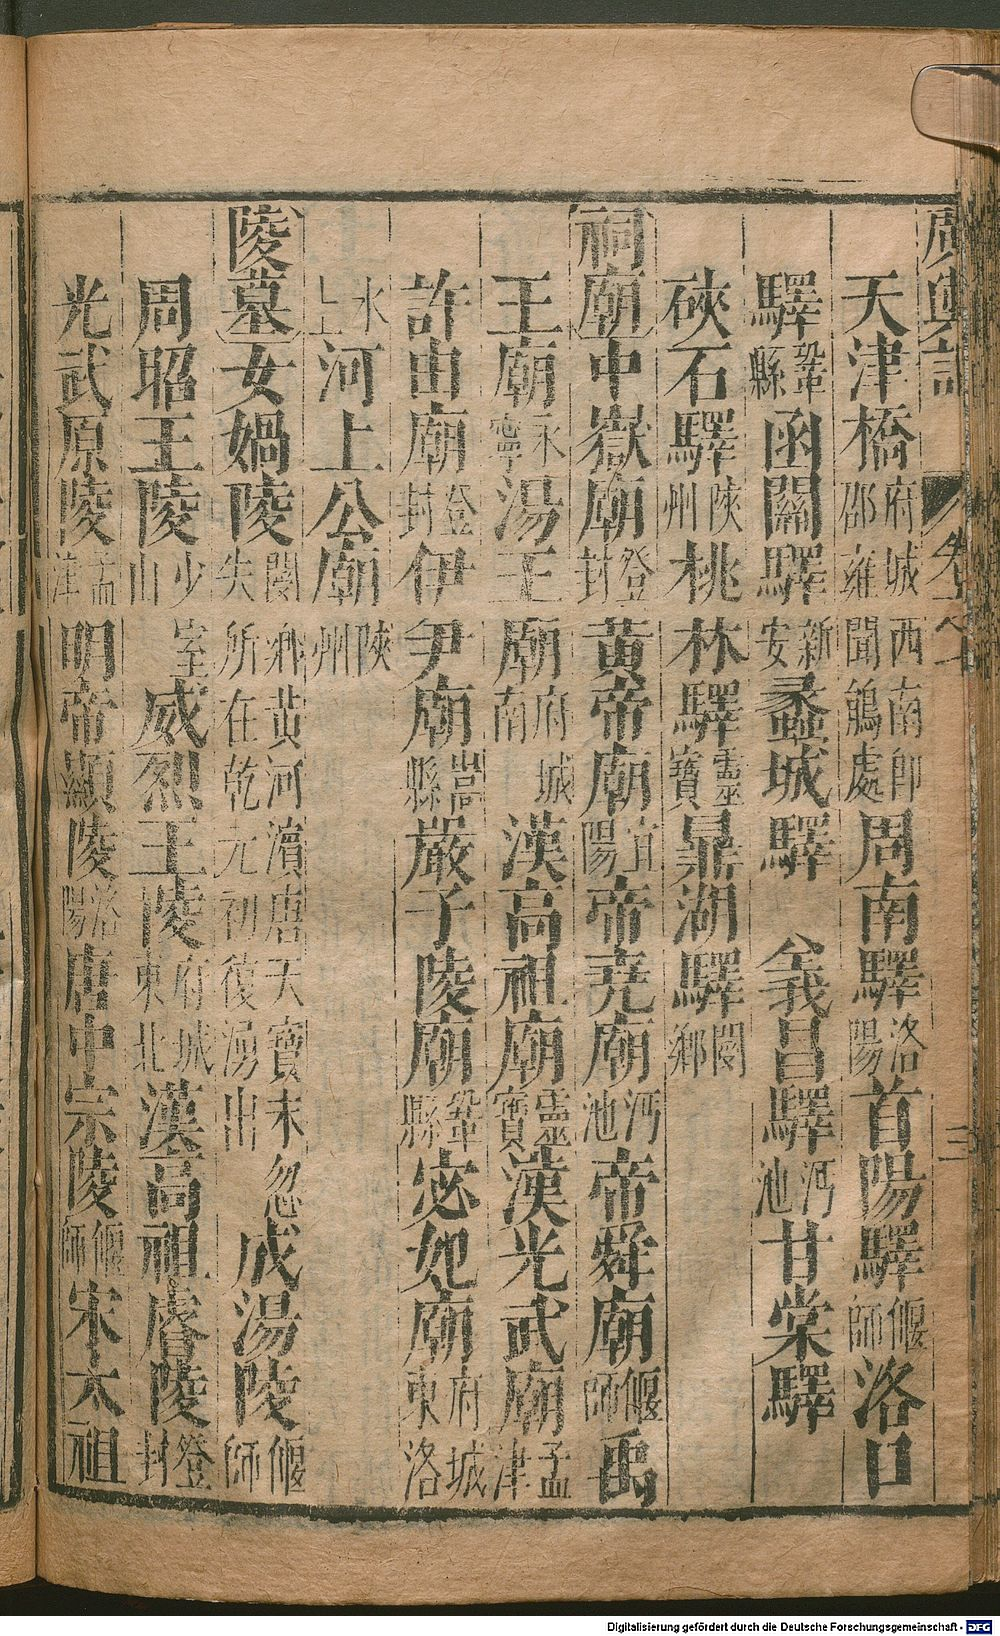 廣輿記 卷之七 三
天津橋府城西南即邵雍聞鵑處周南驛洛陽首陽驛偃師洛口
驛鞏縣函關驛新安蠡城驛 義昌驛沔池甘棠驛
硤石驛陝州桃林驛靈寶鼎湖驛閿鄉
祠廟中嶽廟登封黃帝廟宜陽帝堯廟沔池帝舜廟偃師禹
王廟永寧湯王廟府城南漢高祖廟靈寶漢光武廟孟津
許由廟登封伊尹廟嵩縣嚴子陵廟鞏縣宓妃廟府城東洛
水上河上公廟陝州
陵墓女媧陵閿鄉黃河濱唐天寶末忽失所在乾元初復湧出成湯陵偃師
周昭王陵少室山威烈王陵府城東北漢高祖睿陵登封
光武原陵孟津明帝顯陵洛陽唐中宗陵偃師宋太祖
Digitalisierung gefördert durch die Deutsche Forschungsgemeinschaft - DFG